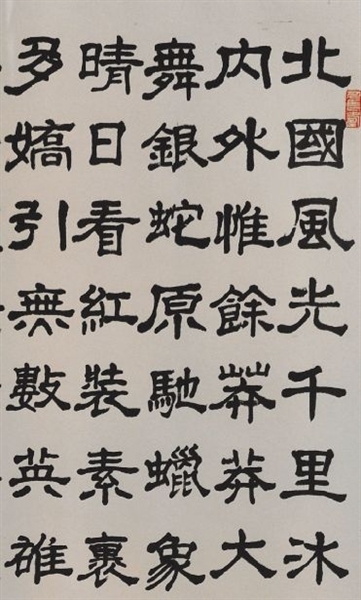 北國風光千里冰
內外惟餘莽莽大
舞銀蛇原馳蠟象
晴日看紅裝素裹
多嬌引無數英雄